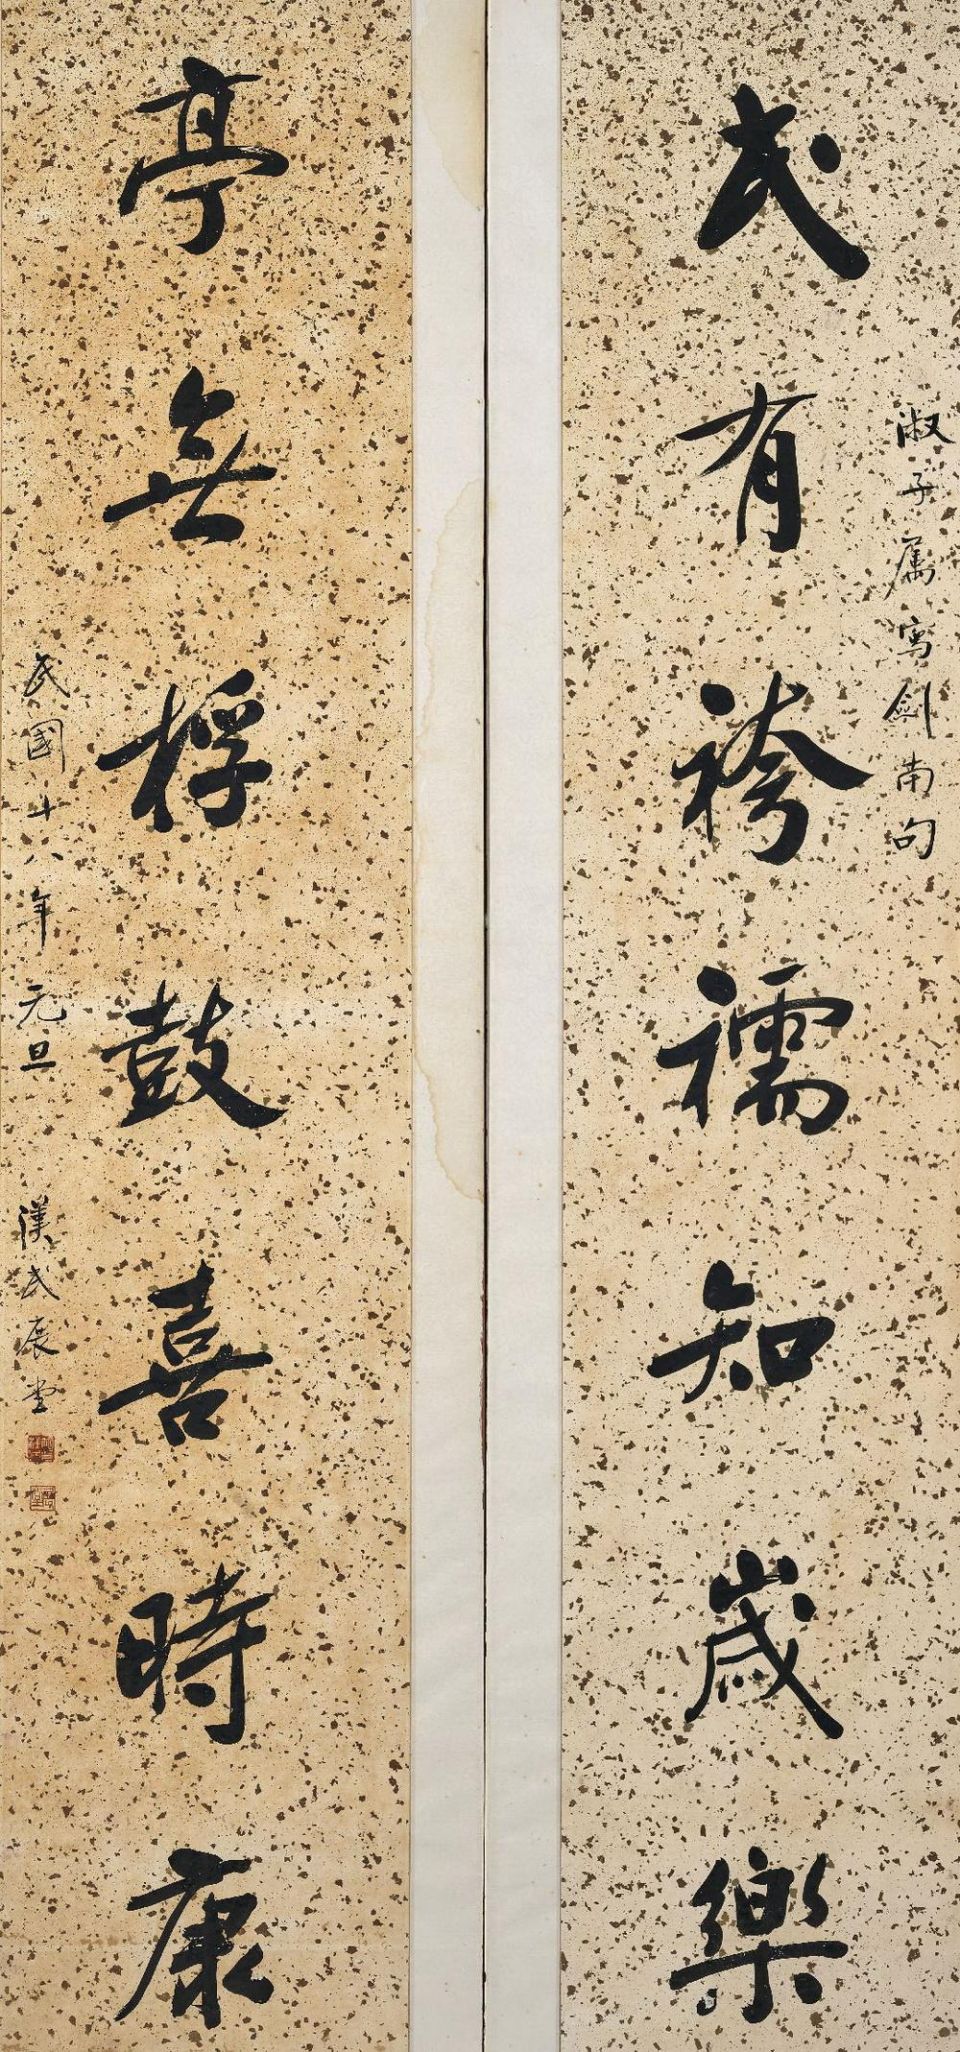 淑子属寫劍南句
民有袴襦知歲樂
亭無桴鼓喜時康
民國十八年元旦 漢民展堂